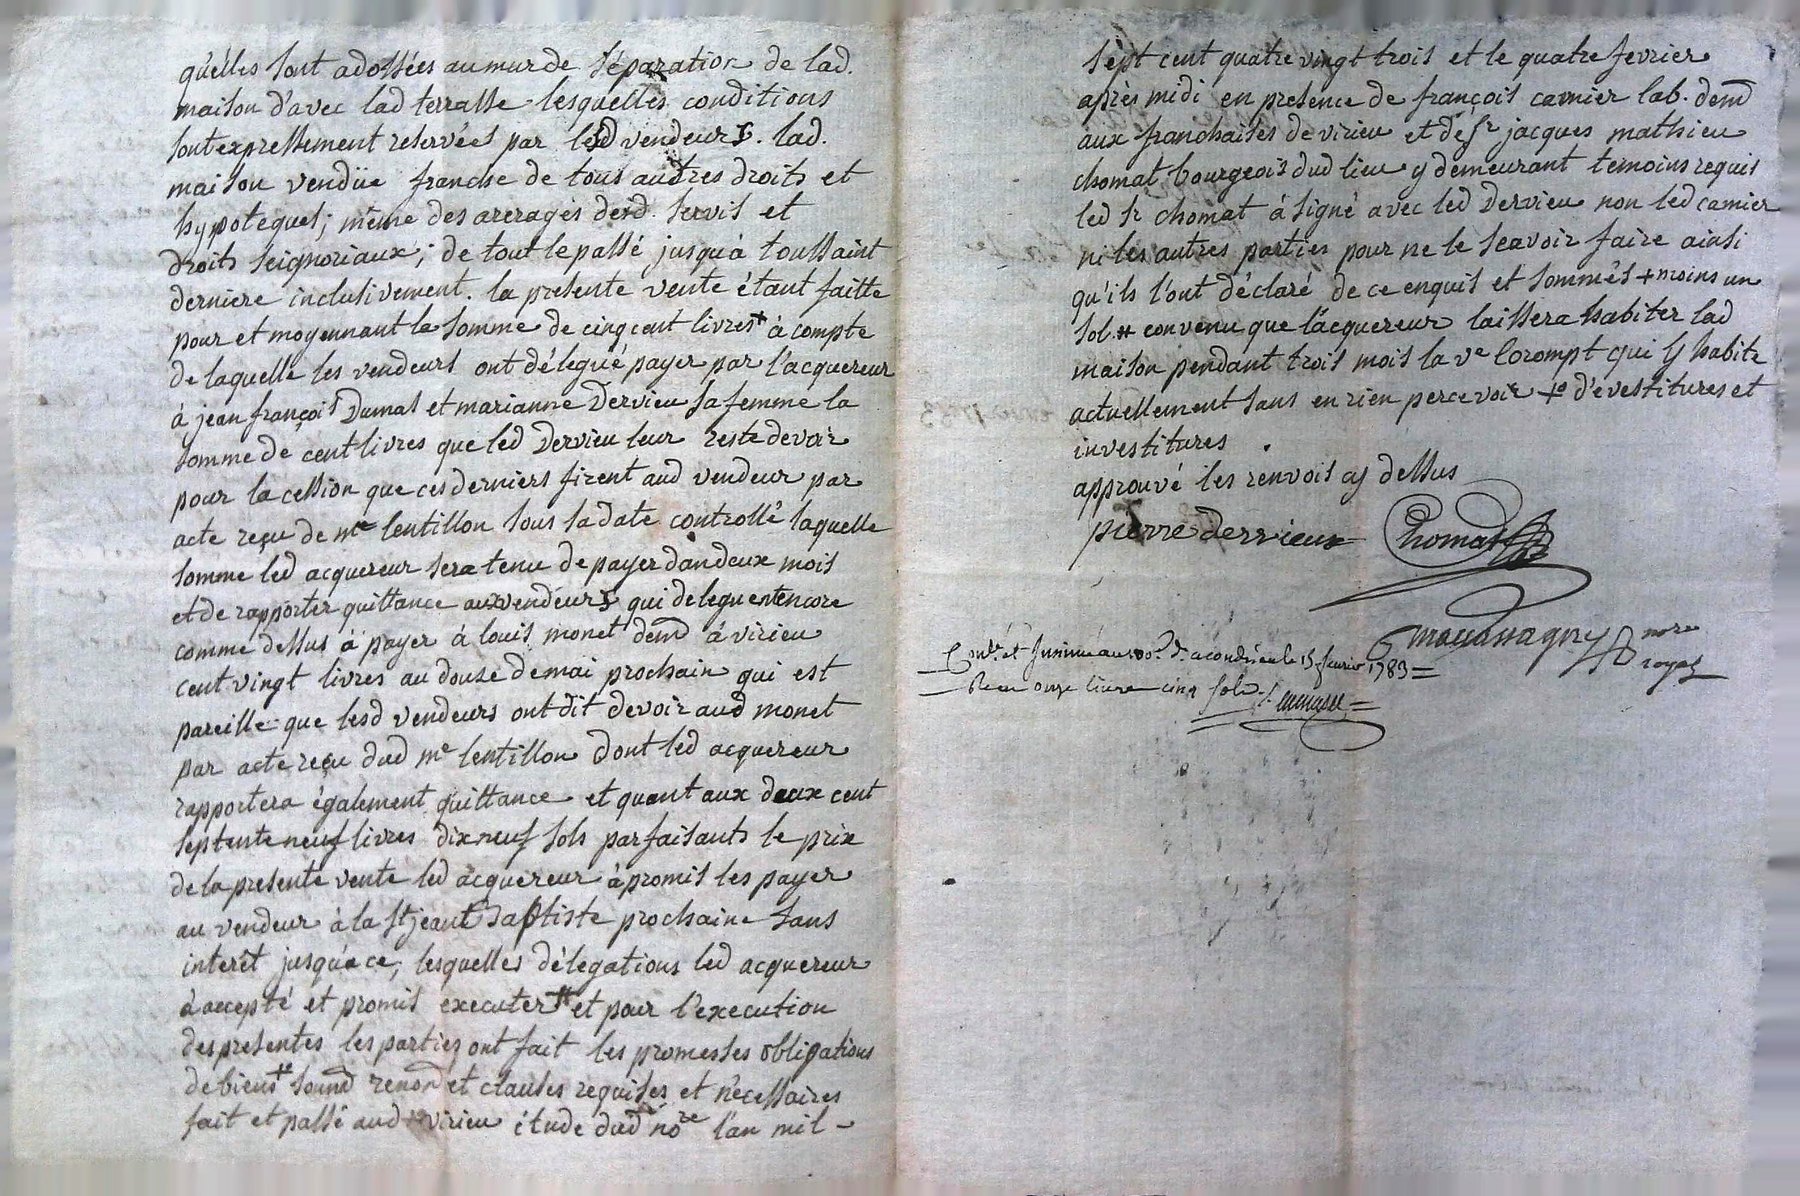 qu'elles sont adossées au mur de séparation de lad.
maison d'avec lad terrasse lesquelles conditions
sont expressement reservées par lesd vendeurs. lad.
maison vendüe franche de tous autres droits et
hypoteques; même des arerages desd. servis et
droits seignoriaux; de tout le passé jusqu'à toussaint
derniere inclusivement. la presente vente étant faitte
pour et moyennant la somme de cinq cent livres + à compte
de laquelle les vendeurs ont délegué payer par l'acquereur
à jean françois Dumas et marianne Dervieu sa femme la
somme de cent livres que led Dervieu leur reste devoir
pour la cession que ces derniers firent aud vendeur par
acte reçu de me lentillon sous sa date controllé laquelle
somme led acquereur sera tenu de payer dans deux mois
et de rapporter quittance aux vendeurs qui deleguent encore
comme dessus à payer à louis monet demd à virieu
cent vingt livres au douse de mai prochain qui est
pareille que lesd vendeurs ont dit devoir aud monet
par acte reçu dud me lentillon dont led acquereur
rapportera également quittance et quant aux deux cent
septente neuf livres dix neuf sols parfaisants le prix
de la presente vente led acquereur à promis les payer
au vendeur à la st jean Baptiste prochaine sans
interêt jusqu'a ce, lesquelles délegations led acquereur
à accepté et promis executer # et pour l'execution
des presentes les parties ont fait les promesses obligations
de biens soumd renond et clauses requises et nécessaires
fait et passé aud virieu étude dud nore l'an mil -
sept cent quatre vingt trois et le quatre fevrier
après midi en presence de françois camier lab. demd
aux franchises de virieu et de sr jacques mathieu
chomat bourgeois dud lieu y demeurant temoins requis
led sr chomat à signé avec led Dervieu non led camier
ni les autres parties pour ne le sçavoir faire ainsi
qu'ils l'ont déclaré de ce enquis et sommés + moins un
sol # convenu que l'acquereur laissera habiter lad
maison pendant trois mois la ve Corompt qui y habite
actuellement sans en rien percevoir d'évestitures et
investitures
approuvé les renvois cy dessus
pierre derrieux Chomat
nore
royal
le 15 fevrier 1783
Reçu onze livres cinq sols